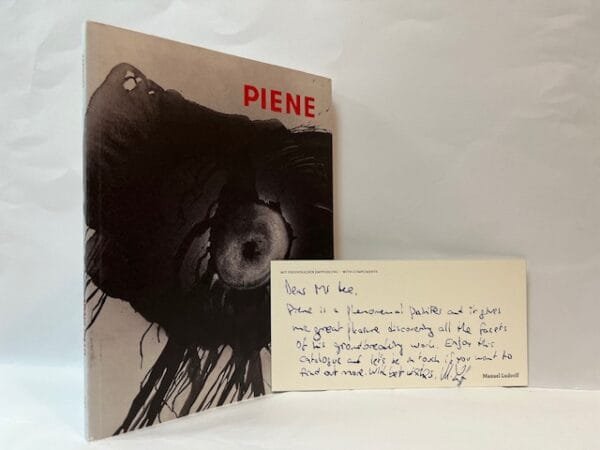 PIENE
MIT FREUNDLICHER EMPFEHLUNG – WITH COMPLIMENTS
Dear Mr Lee,
Piene is a phenomenal painter and it gives
me great pleasure discovering all the facets
of his groundbreaking work. Enjoy this
catalogue and let's be in touch if you want to
find out more. With best wishes,
Manuel Ludorff